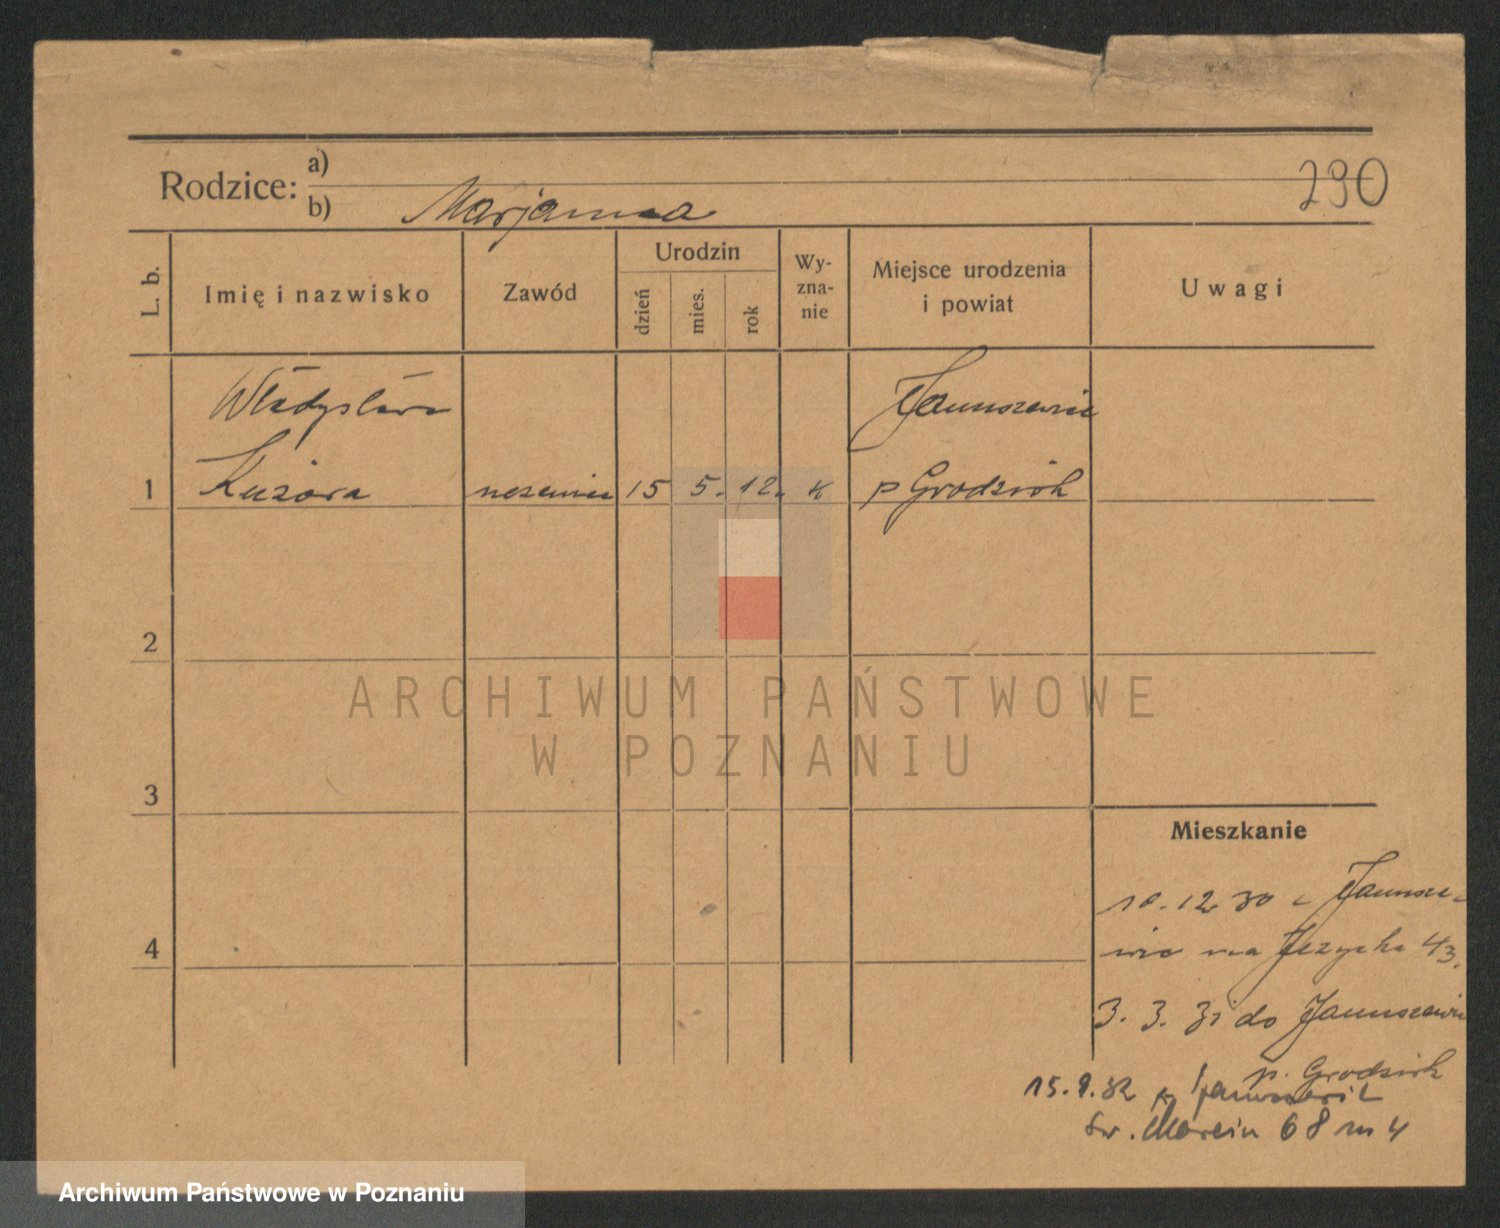 Rodzice:
a)
b) Marjanna
290
L. b.
Imię i nazwisko
Zawód
Urodzin
dzień
mies.
rok
Wy-
zna-
nie
Miejsce urodzenia
i powiat
Uwagi
Władysława
Januszewic
1 Kuzora 15 5. 12. K p Grodzisk
2
ARCHIWUM PAŃSTWOWE
W POZNANIU
3
Mieszkanie
10.12 30 z Janusze-
wic na 43.
4
3. 3. 31 do Januszewic
p. Grodzisk
15.9.32
św. Marcin 68 m 4
Archiwum Państwowe w Poznaniu